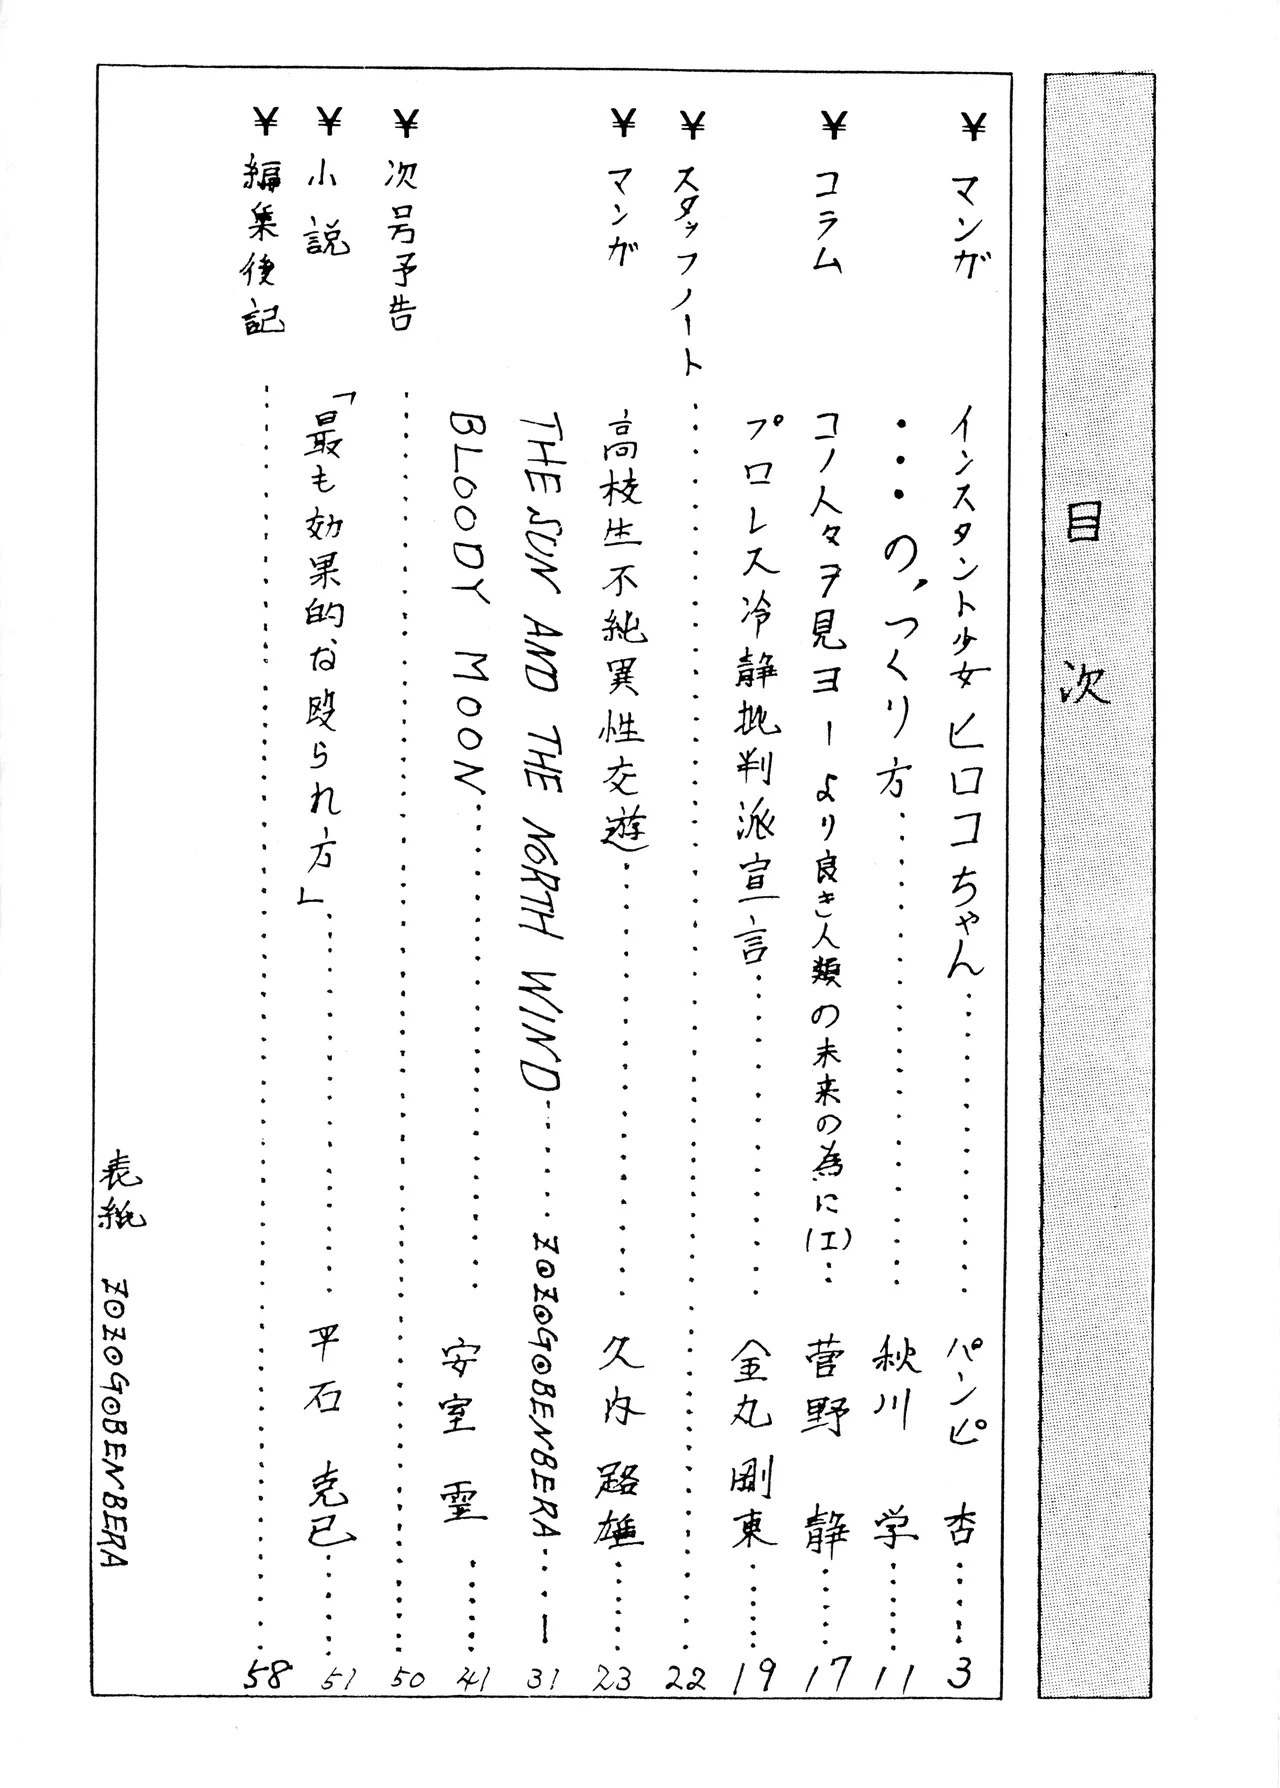 目次
¥ マンガ インスタント少女ヒロコちゃん・・・・・・・・・・・・・・・ パンピ 杏・・・・・・3
・・・の、つくり方・・・・・・・・・・・・・・・・・・・・ 秋川 学・・・・・・11
¥ コラム コノ人々ヲ見ヨー より良き人類の未来の為に(エ)・・ 菅野 静・・・・・・17
プロレス冷静批判派宣言・・・・・・・・・・・・・・・ 金丸 剛東・・・・・・19
¥ スタッフノート・・・・・・・・・・・・・・・・・・・・・・・・・・・・・・22
¥ マンガ 高校生不純異性交遊・・・・・・・・・・・・・・・・・・ 久内 路雄・・・・・・23
THE SUN AND THE NORTH WIND・・・・・・ ZOZOGOBENBERA・・・ー31
BLOODY MOON・・・・・・・・・・・・・・・・・・・・ 安室 雪・・・・・・41
¥ 次号予告・・・・・・・・・・・・・・・・・・・・・・・・・・・・・・50
¥ 小説 「最も効果的な殴られ方」・・・・・・・・・・・・・・・ 平石 克己・・・・・・51
¥ 編集後記・・・・・・・・・・・・・・・・・・・・・・・・・・・・・・58
表紙 ZOZOGOBENBERA